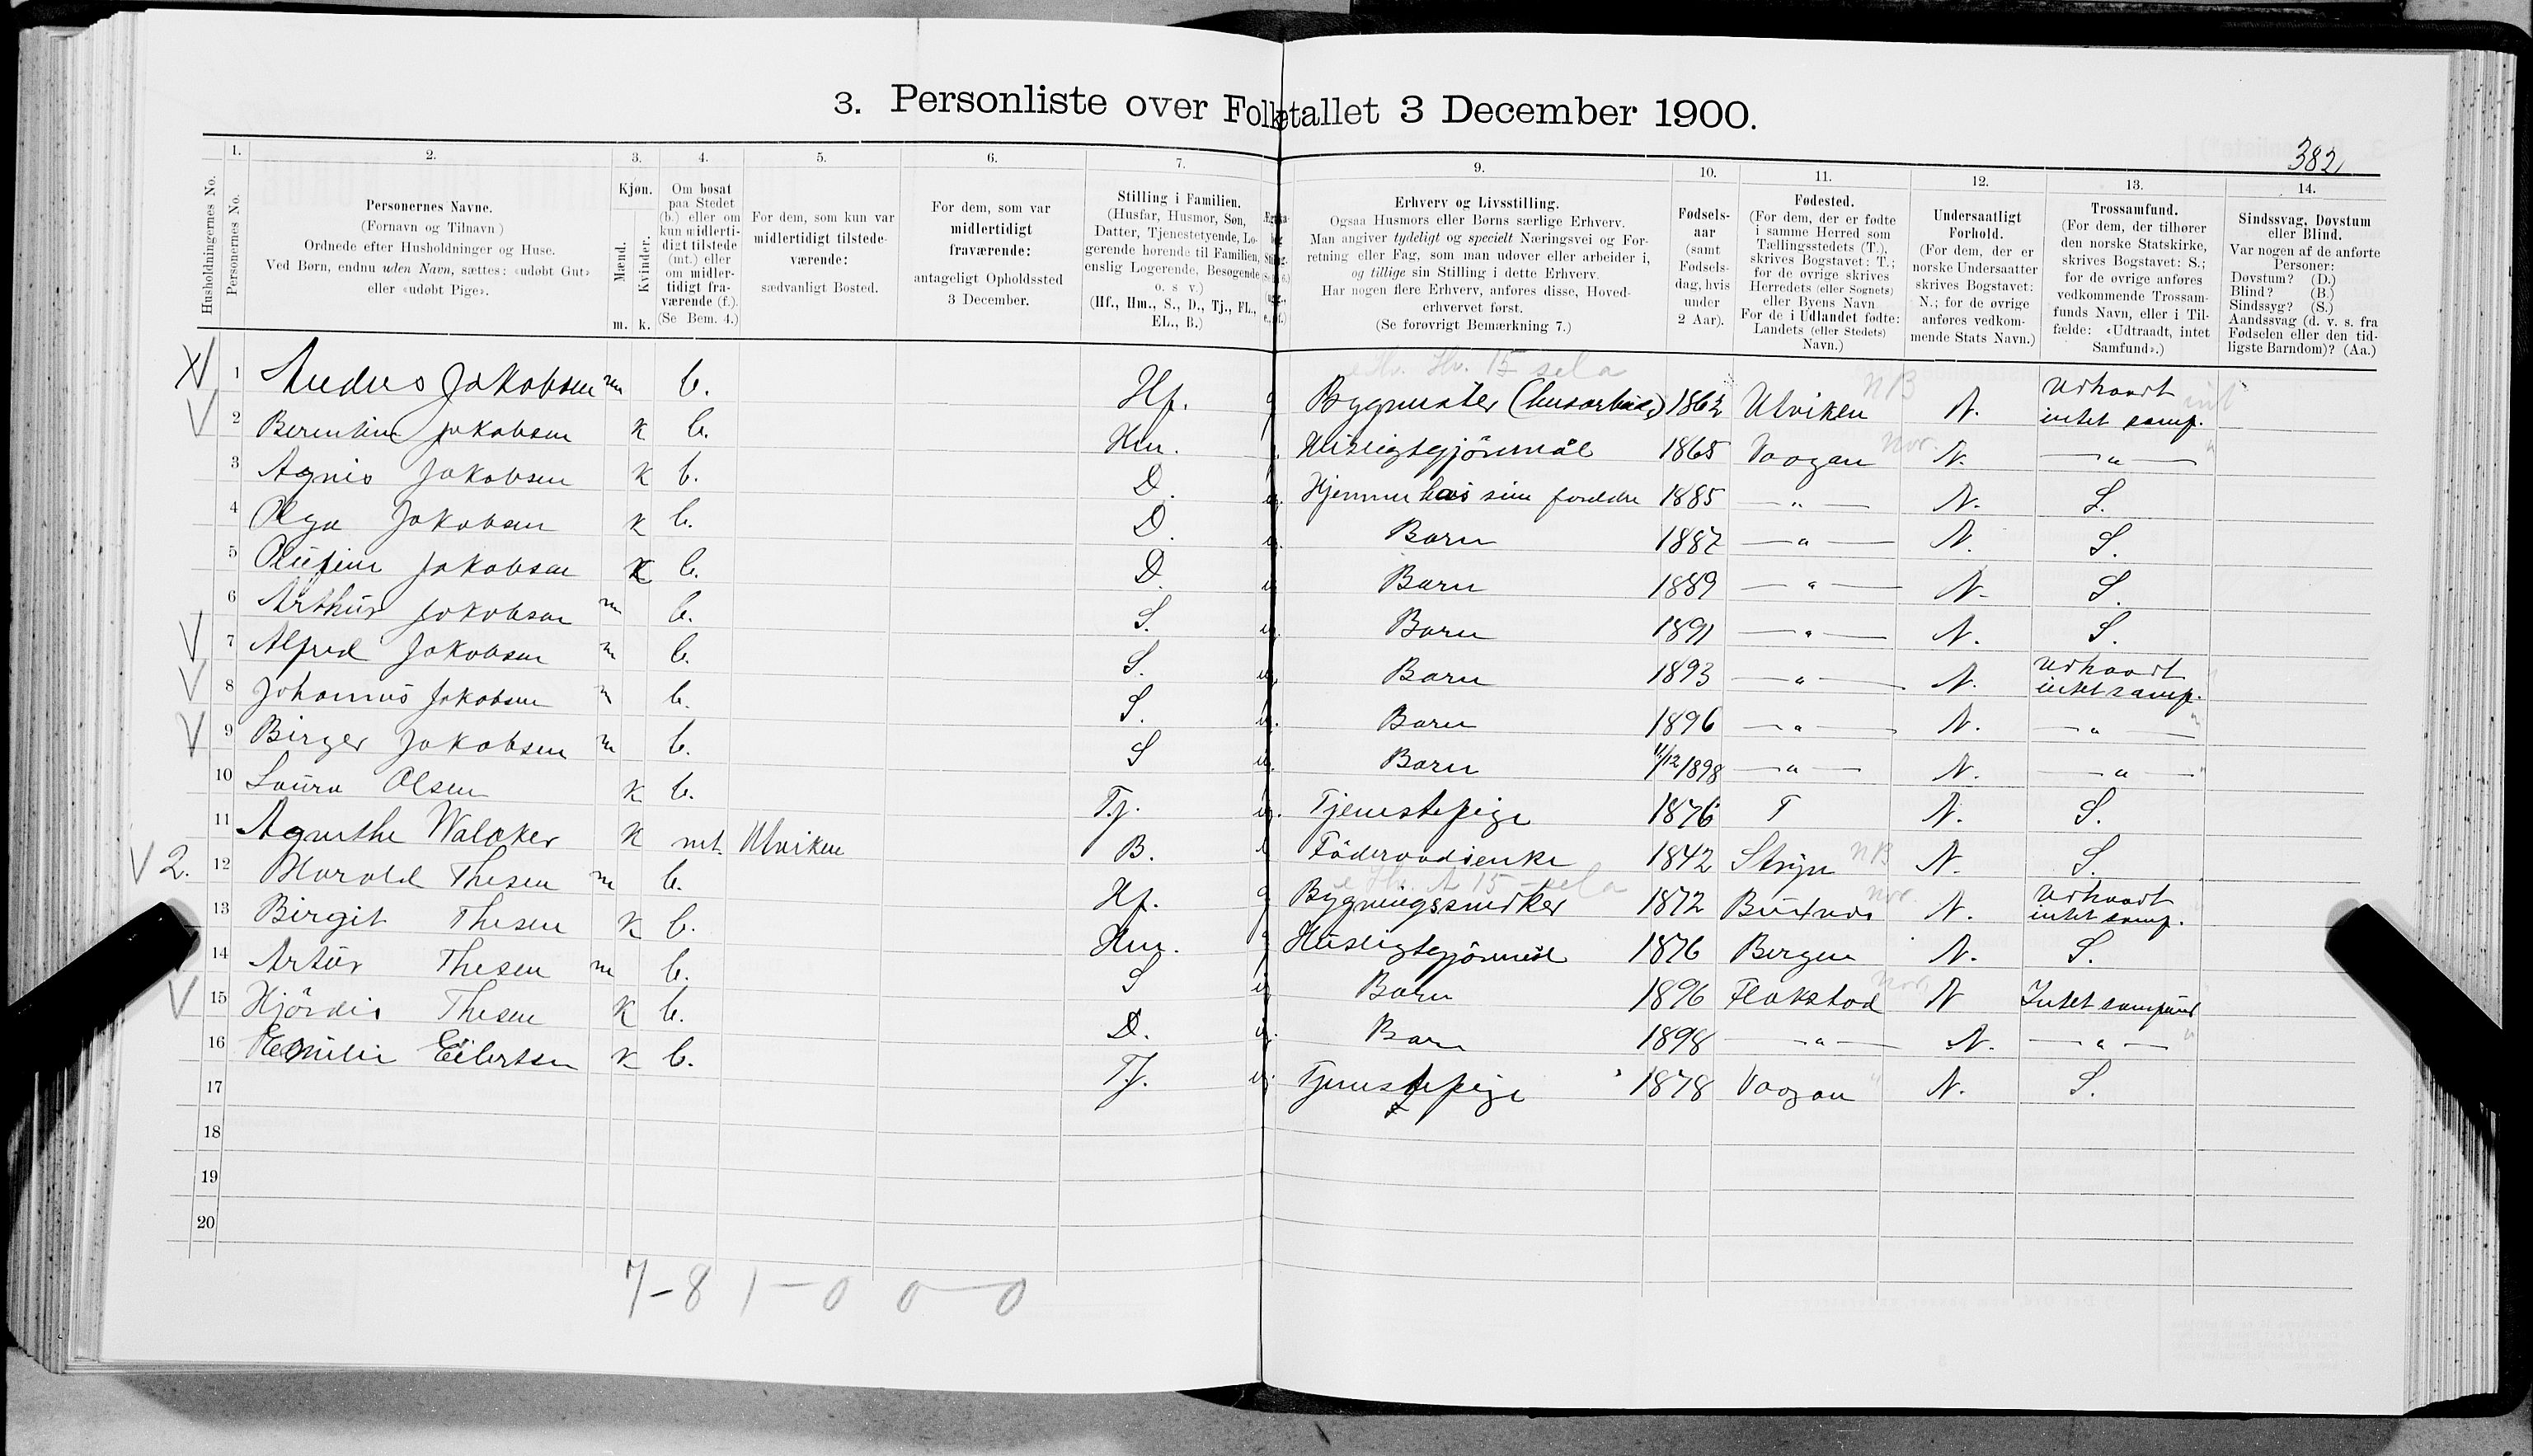 3. Personliste over Folketallet 3 December 1900.
382
1. 2. 3. 4. 5. 6. 7. 9. 10. 11. 12. 13. 14.
Husholdningernes No.
Personernes No.
Personernes Navne.
(Fornavn og Tilnavn)
Ordnede efter Husholdninger og Huse.
Ved Børn, endnu uden Navn, sættes: «udøbt Gut»
eller «udøbt Pige».
Kjøn.
Mænd.
Kvinder.
m. k.
Om bosat
paa Stedet
(b.) eller om
kun midlerti-
digt tilstede
(mt.) eller
om midler-
tidigt fra-
værende (f.).
(Se Bem. 4.)
For dem, som kun var
midlertidigt tilstede-
værende:
sædvanligt Bosted.
For dem, som var
midlertidigt
fraværende:
antageligt Opholdssted
3 December.
Stilling i Familien.
(Husfar, Husmor, Søn,
Datter, Tjenestetyende, Lo-
gerende hørende til Familien,
enslig Logerende, Besøgende
o. s. v.)
(Hf., Hm., S., D., Tj., FL.,
EL., B.)
Erhverv og Livsstilling.
Ogsaa Husmors eller Børns særlige Erhverv.
Man angiver tydeligt og specielt Næringsvei og For-
retning eller Fag, som man udøver eller arbeider i,
og tillige sin Stilling i dette Erhverv.
Har nogen flere Erhverv, anføres disse, Hoved-
erhvervet først.
(Se forøvrigt Bemærkning 7.)
Fødsels-
aar
(samt
Fødsels-
dag, hvis
under
2 Aar).
Fødested.
(For dem, der er fødte
i samme Herred som
Tællingsstedets (T.),
skrives Bogstavet: T.;
for de øvrige skrives
Herredets (eller Sognets)
eller Byens Navn.
For de i Udlandet fødte:
Landets (eller Stedets)
Navn.)
Undersaatligt
Forhold.
(For dem, der er
norske Undersaatter
skrives Bogstavet:
N.; for de øvrige
anføres vedkom-
mende Stats Navn.)
Trossamfund.
(For dem, der tilhører
den norske Statskirke,
skrives Bogstavet: S.;
for de øvrige anføres
vedkommende Trossam-
funds Navn, eller i Til-
fælde: «Udtraadt, intet
Samfund».)
Sindssvag, Døvstum
eller Blind.
Var nogen af de anførte
Personer:
Døvstum? (D.)
Blind? (B.)
Sindssyg? (S.)
Aandssvag (d. v. s. fra
Fødselen eller den tid-
ligste Barndom)? (Aa.)
1 Jakobsen m b. Hf. g 1862 Ulviken N. intet samf.
2 Jakobsen k b. Hm. 1865 Vaagan N. — " —
3 Agnes Jakobsen k b. D. Hjemme hos sine 1885 — " — N. S.
4 Olga Jakobsen k b. D. Barn 1887 — " — N. S.
5 Jakobsen k b. D. Barn 1889 — " — N. S.
6 Arthur Jakobsen m b. S. Barn 1891 — " — N. S.
7 Alfred Jakobsen m b. S. Barn 1893 — " — N. intet samf.
8 Johannes Jakobsen m b. S. Barn 1896 — " — N. — " —
9 Birger Jakobsen m b. S Barn 1898 — " — N. — " —
10 Laura Olsen k b. Tj. Tjenestepige 1876 T N. S.
11 Agnethe Walaker k mt. Ulviken B. 1842 Stryn N. S.
2. 12 Harald Thesen m b. Hf. g Bygningssnedker 1872 Buxnes N. intet samf.
13 Birgit Thesen k b. Hm. g 1876 Bergen N. S.
14 Artur Thesen m b. S Barn 1896 Flakstad N Intet samfund
15 Hjördis Thesen k b. D. Barn 1898 — " — N. — " —
16 Emilie Eilertsen k b. Tj. Tjenestepige 1878 Vaagan N. S.
17
18
19
20
7-8 1-0 0-0